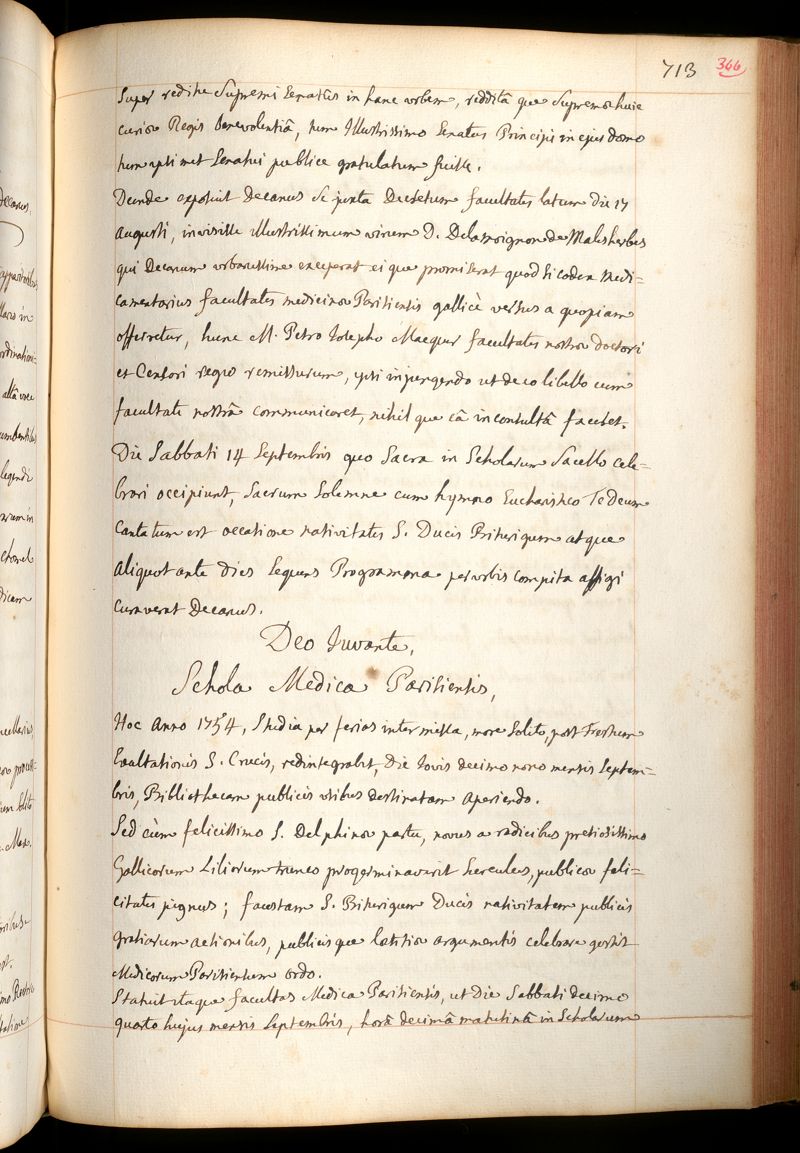 713 366
Super reditu Supremi Senatûs in hanc urbem, redditâ que Supremæ huic
curiæ Regis benevolentiâ, tum Illustrissimo Senatus Principi in ejus domo
tum ipsi met Senatui publice gratulatum fuisse.
Deinde exposuit Decanus se juxta Decretum facultatis latum die 17
Augusti, invisisse illustrissimum virum D. Delamoignon de Malesherbes
qui Decanum urbanissime exceperat ei que promiserat quod si codex Medi=
camentarius facultatis medicinæ Parisiensis gallicè versus a quopiam
offerretur, hunc M. Petro Josepho Macquer facultatis nostræ doctori
et Censori regio remissurum, ipsi injungendo ut de eo libello cum
facultate nostrâ communicaret, nihil que eâ inconsultâ faceret.
Die Sabbati 14 Septembris quo Sacra in Scholarum Sacello cele=
brari occipiunt, Sacrum Solemne cum hymno Eucharistico Te Deum
Cantatum est occasione nativitatis S. Ducis Biturigum atque
aliquot ante dies Sequens Programma per urbis compita affigi
curaverat Decanus.
Deo Juvante,
Schola Medica Parisiensis,
Hoc Anno 1754, Studia per ferias intermissa, more Solito, post Festum
Exaltationis S. Crucis, redintegrabit, Die Jovis decimo nono mensis Septem=
bris, Bibliothecam publicis usibus destinatam aperiendo.
Sed cùm felicissimo S. Delphinæ partu, novus a radicibus pretiosissimo
Gallicorum Liliorum trunco progerminaverit surculus, publicæ feli=
citatis pignus; faustam S. Biturigum Ducis nativitatem publicis
gratiarum actionibus, publicisque lætitiæ argumentis celebrare gestit
Medicorum Parisiensium ordo.
Statuit itaque facultas Medica Parisiensis, ut Die Sabbati decimo
quarto hujus mensis Septembris, horâ decimâ matutinâ in Scholarum